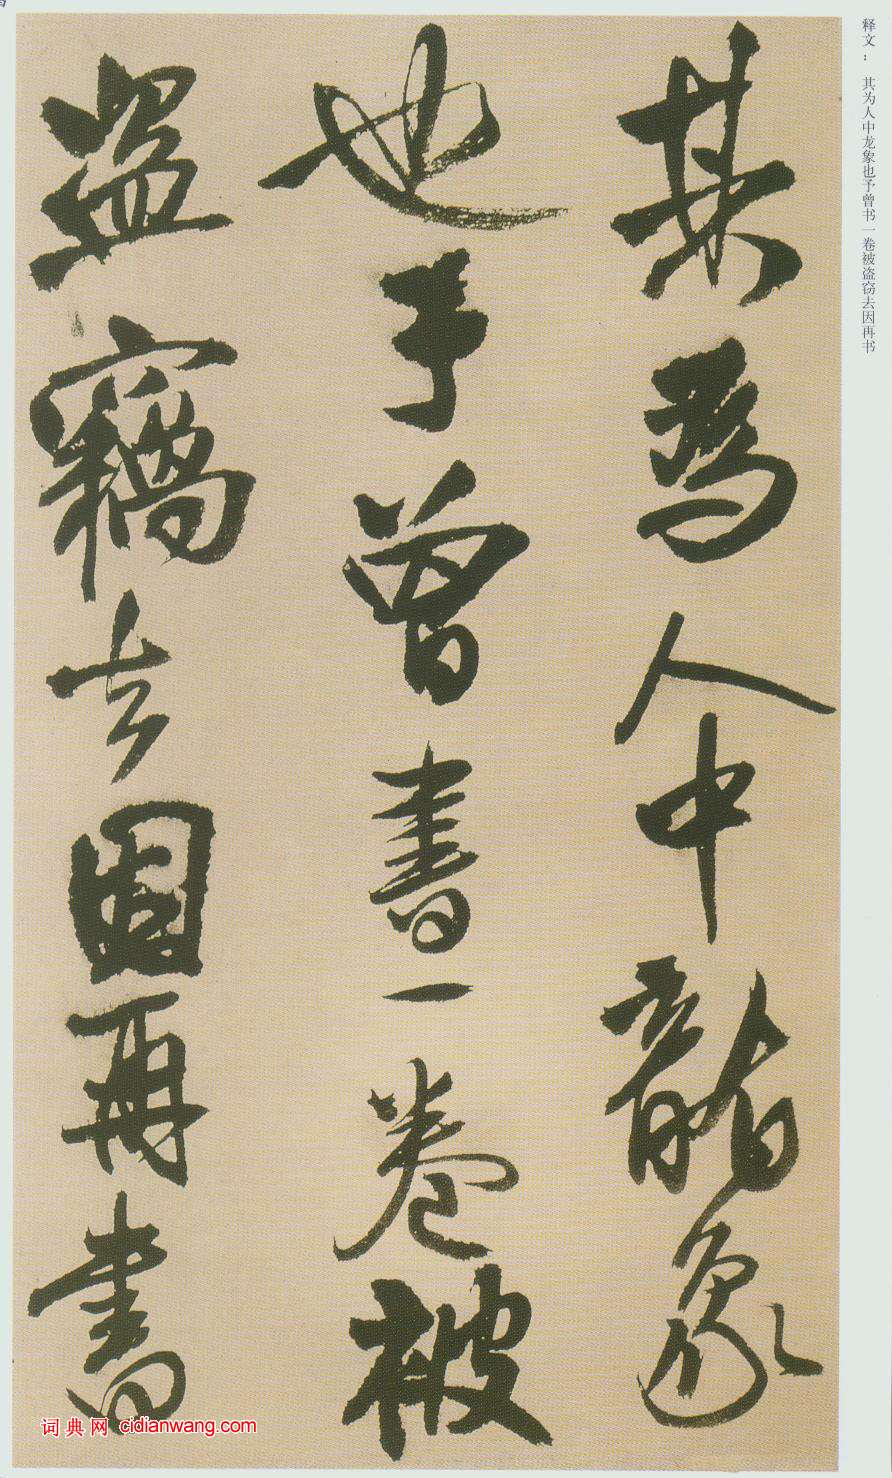 释文：其为人中龙象也予曾书一卷被盗窃去因再书
其為人中龍象
也予曾書一卷被
盗竊去因再書
词典网 cidianwang.com